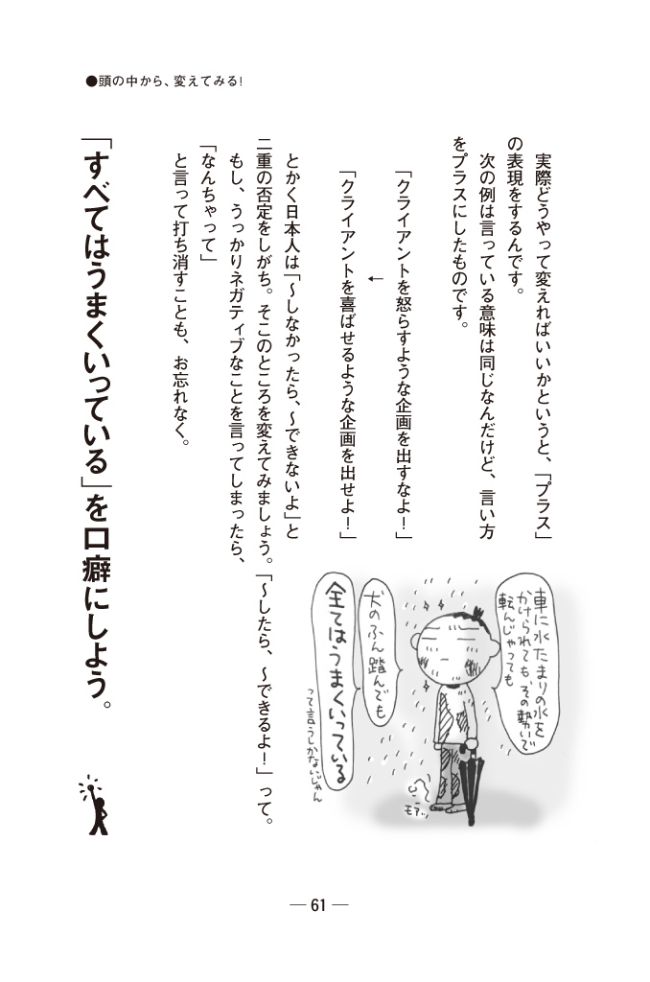 ●頭の中から、変えてみる!
実際どうやって変えればいいかというと、「プラス」
の表現をするんです。
次の例は言っている意味は同じなんだけど、言い方
をプラスにしたものです。
「クライアントを怒らすような企画を出すなよ!」
←
「クライアントを喜ばせるような企画を出せよ!」
とかく日本人は「〜しなかったら、〜できないよ」と
二重の否定をしがち。そこのところを変えてみましょう。「〜したら、〜できるよ!」って。
もし、うっかりネガティブなことを言ってしまったら、
「なんちゃって」
と言って打ち消すことも、お忘れなく。
「すべてはうまくいっている」を口癖にしよう。
車に水たまりの水を
かけられても、その勢いで
転んじゃっても
犬のふん踏んでも
全てはうまくいっている
って言うしかないじゃん
モアッ
— 61 —